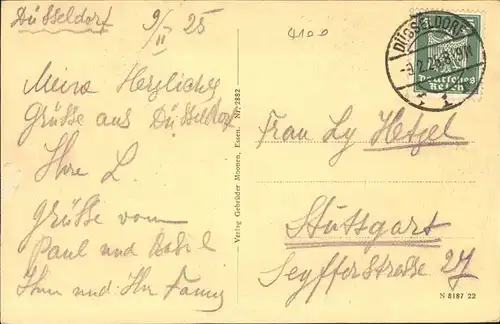 Düsseldorf 9/II 25
4100
Meine Herzliche
Grüsse aus Düsseldorf
Ihre L.
Grüsse vom
Paul und
Ihm und Ihr
Verlag Gebrüder Moomen, Essen. Nr. 2882
DÜSSELDORF
Deutsches
Reich
1 1
Frau Ly Hetzel
Stuttgart
Seyfferstrasse 27
N 8187 22